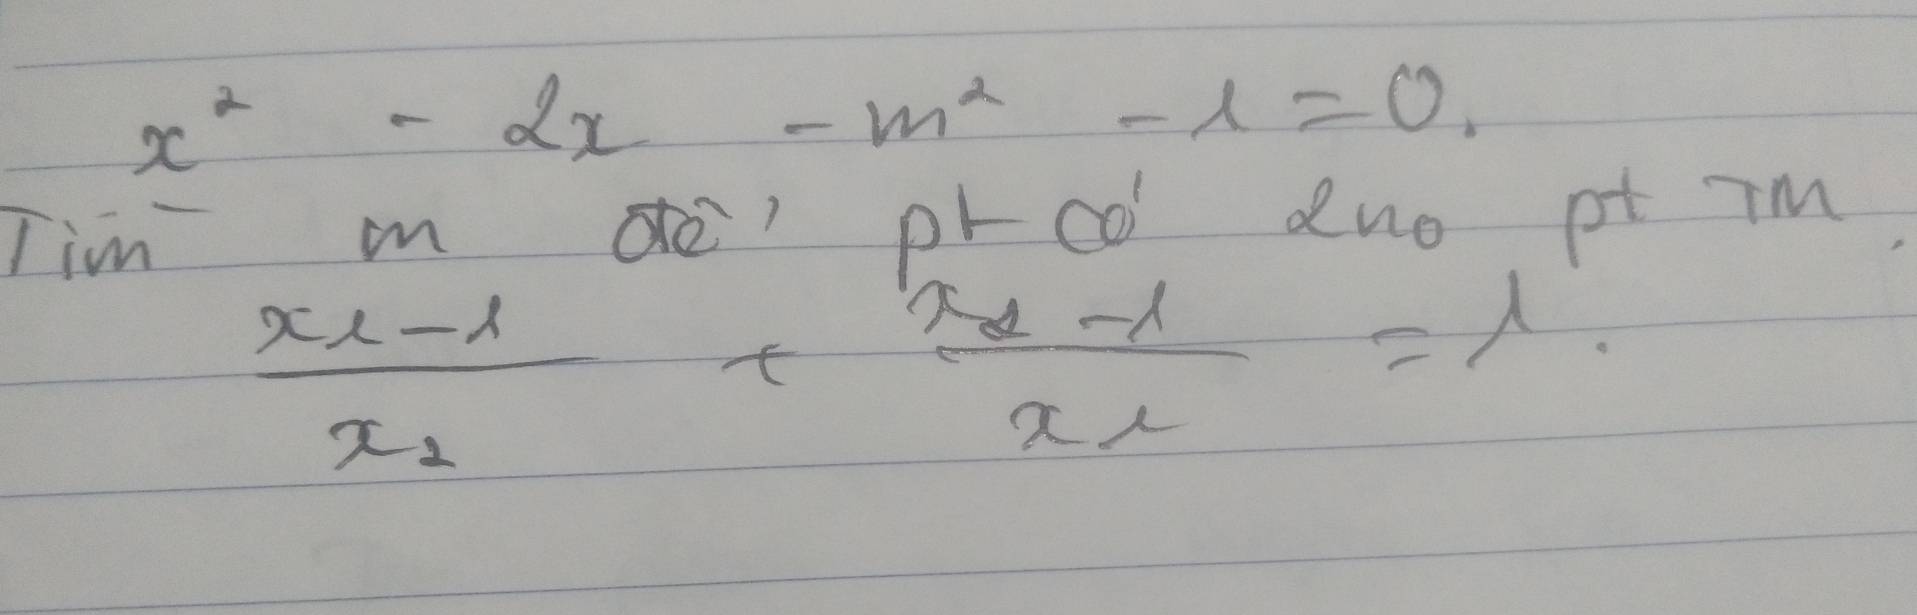 x² - 2x - m² - 1 = 0.
Tìm m để pt có 2 no pt TM.
(x1 - 1)/x2 + (x2 - 1)/x1 = 1.